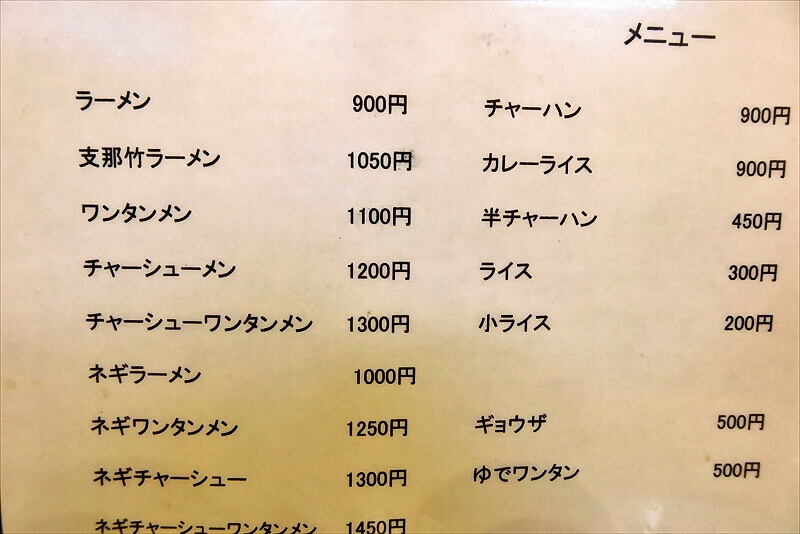 メニュー
ラーメン 900円
支那竹ラーメン 1050円
ワンタンメン 1100円
チャーシューメン 1200円
チャーシューワンタンメン 1300円
ネギラーメン 1000円
ネギワンタンメン 1250円
ネギチャーシュー 1300円
ネギチャーシューワンタンメン 1450円
チャーハン 900円
カレーライス 900円
半チャーハン 450円
ライス 300円
小ライス 200円
ギョウザ 500円
ゆでワンタン 500円